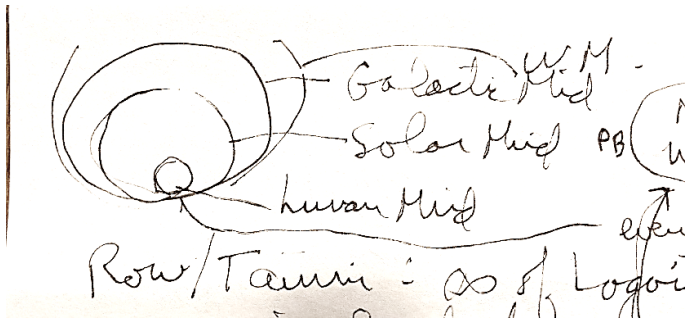 W M.
Galactic Mid
Solar Mind PB
human Mind
Row/Taimni: ∞ of Logoi